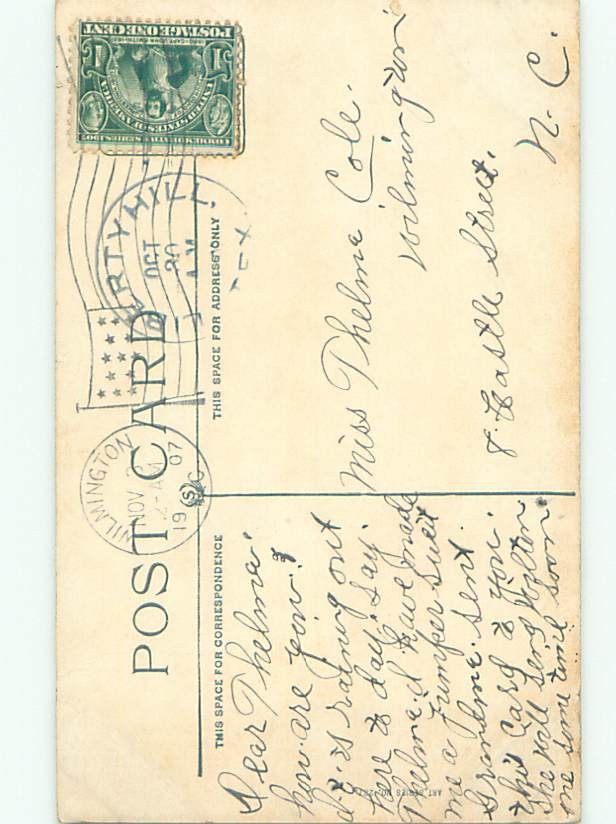 POST CARD
THIS SPACE FOR CORRESPONDENCE
THIS SPACE FOR ADDRESS ONLY
COMMEMORATIVE SERIES 1907
UNITED STATES OF AMERICA
1 1
POSTAGE ONE CENT
HILL,
TEX.
OCT
20
A M
WILMINGTON
NOV
2-A
1907
Dear Thelma.
how are you?
it is raining out
here to day. Say
Thelma I have made
me a Jumper suit
Grandma sent
this Card to you.
She will send Wilton
one some time soon
Miss Thelma Cole.
Wilmington
8. Castle Street.
N. C.
ART SERIES NO.